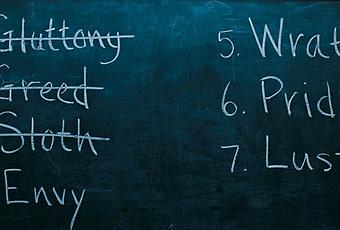 Gluttony
Greed
Sloth
Envy
5. Wrat
6. Prid
7. Lust